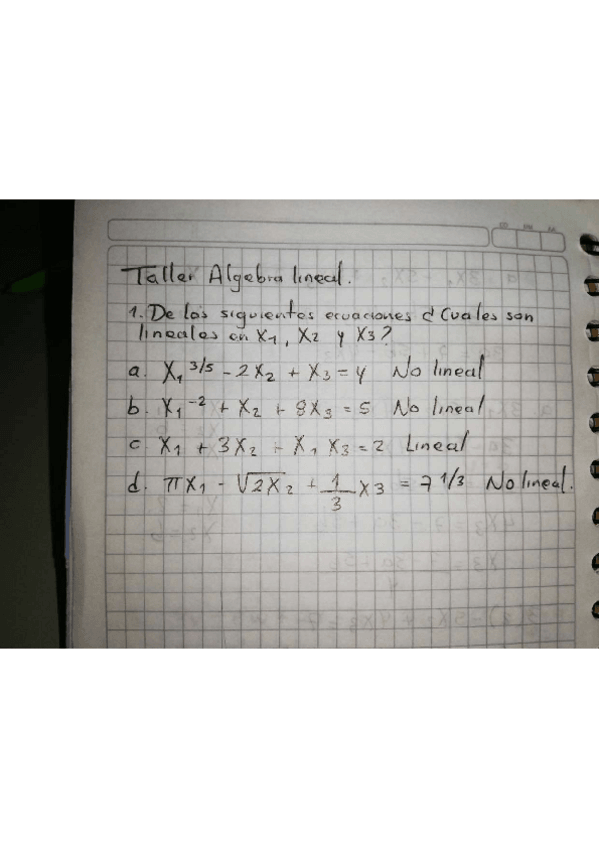 Taller Algebra lineal.
1. De las siguientes ecuaciones ¿Cuales son
lineales en X1, X2 y X3?
a. X1^3/5 - 2X2 + X3 = 4 No lineal
b. X1^-2 + X2 + 8X3 = 5 No lineal
c. X1 + 3X2 + X1 X3 = 2 Lineal
d. πX1 - √2X2 + 1/3 X3 = 7^1/3 No lineal.